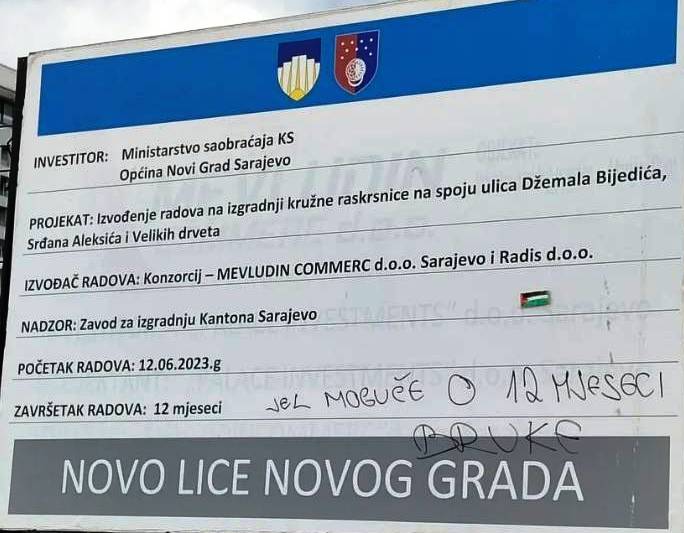 INVESTITOR: Ministarstvo saobraćaja KS
Općina Novi Grad Sarajevo
PROJEKAT: Izvođenje radova na izgradnji kružne raskrsnice na spoju ulica Džemala Bijedića,
Srđana Aleksića i Velikih drveta
IZVOĐAČ RADOVA: Konzorcij – MEVLUDIN COMMERC d.o.o. Sarajevo i Radis d.o.o.
NADZOR: Zavod za izgradnju Kantona Sarajevo
POČETAK RADOVA: 12.06.2023.g
ZAVRŠETAK RADOVA: 12 mjeseci JEL MOGUĆE O 12 MJESECI
BRUKE
NOVO LICE NOVOG GRADA